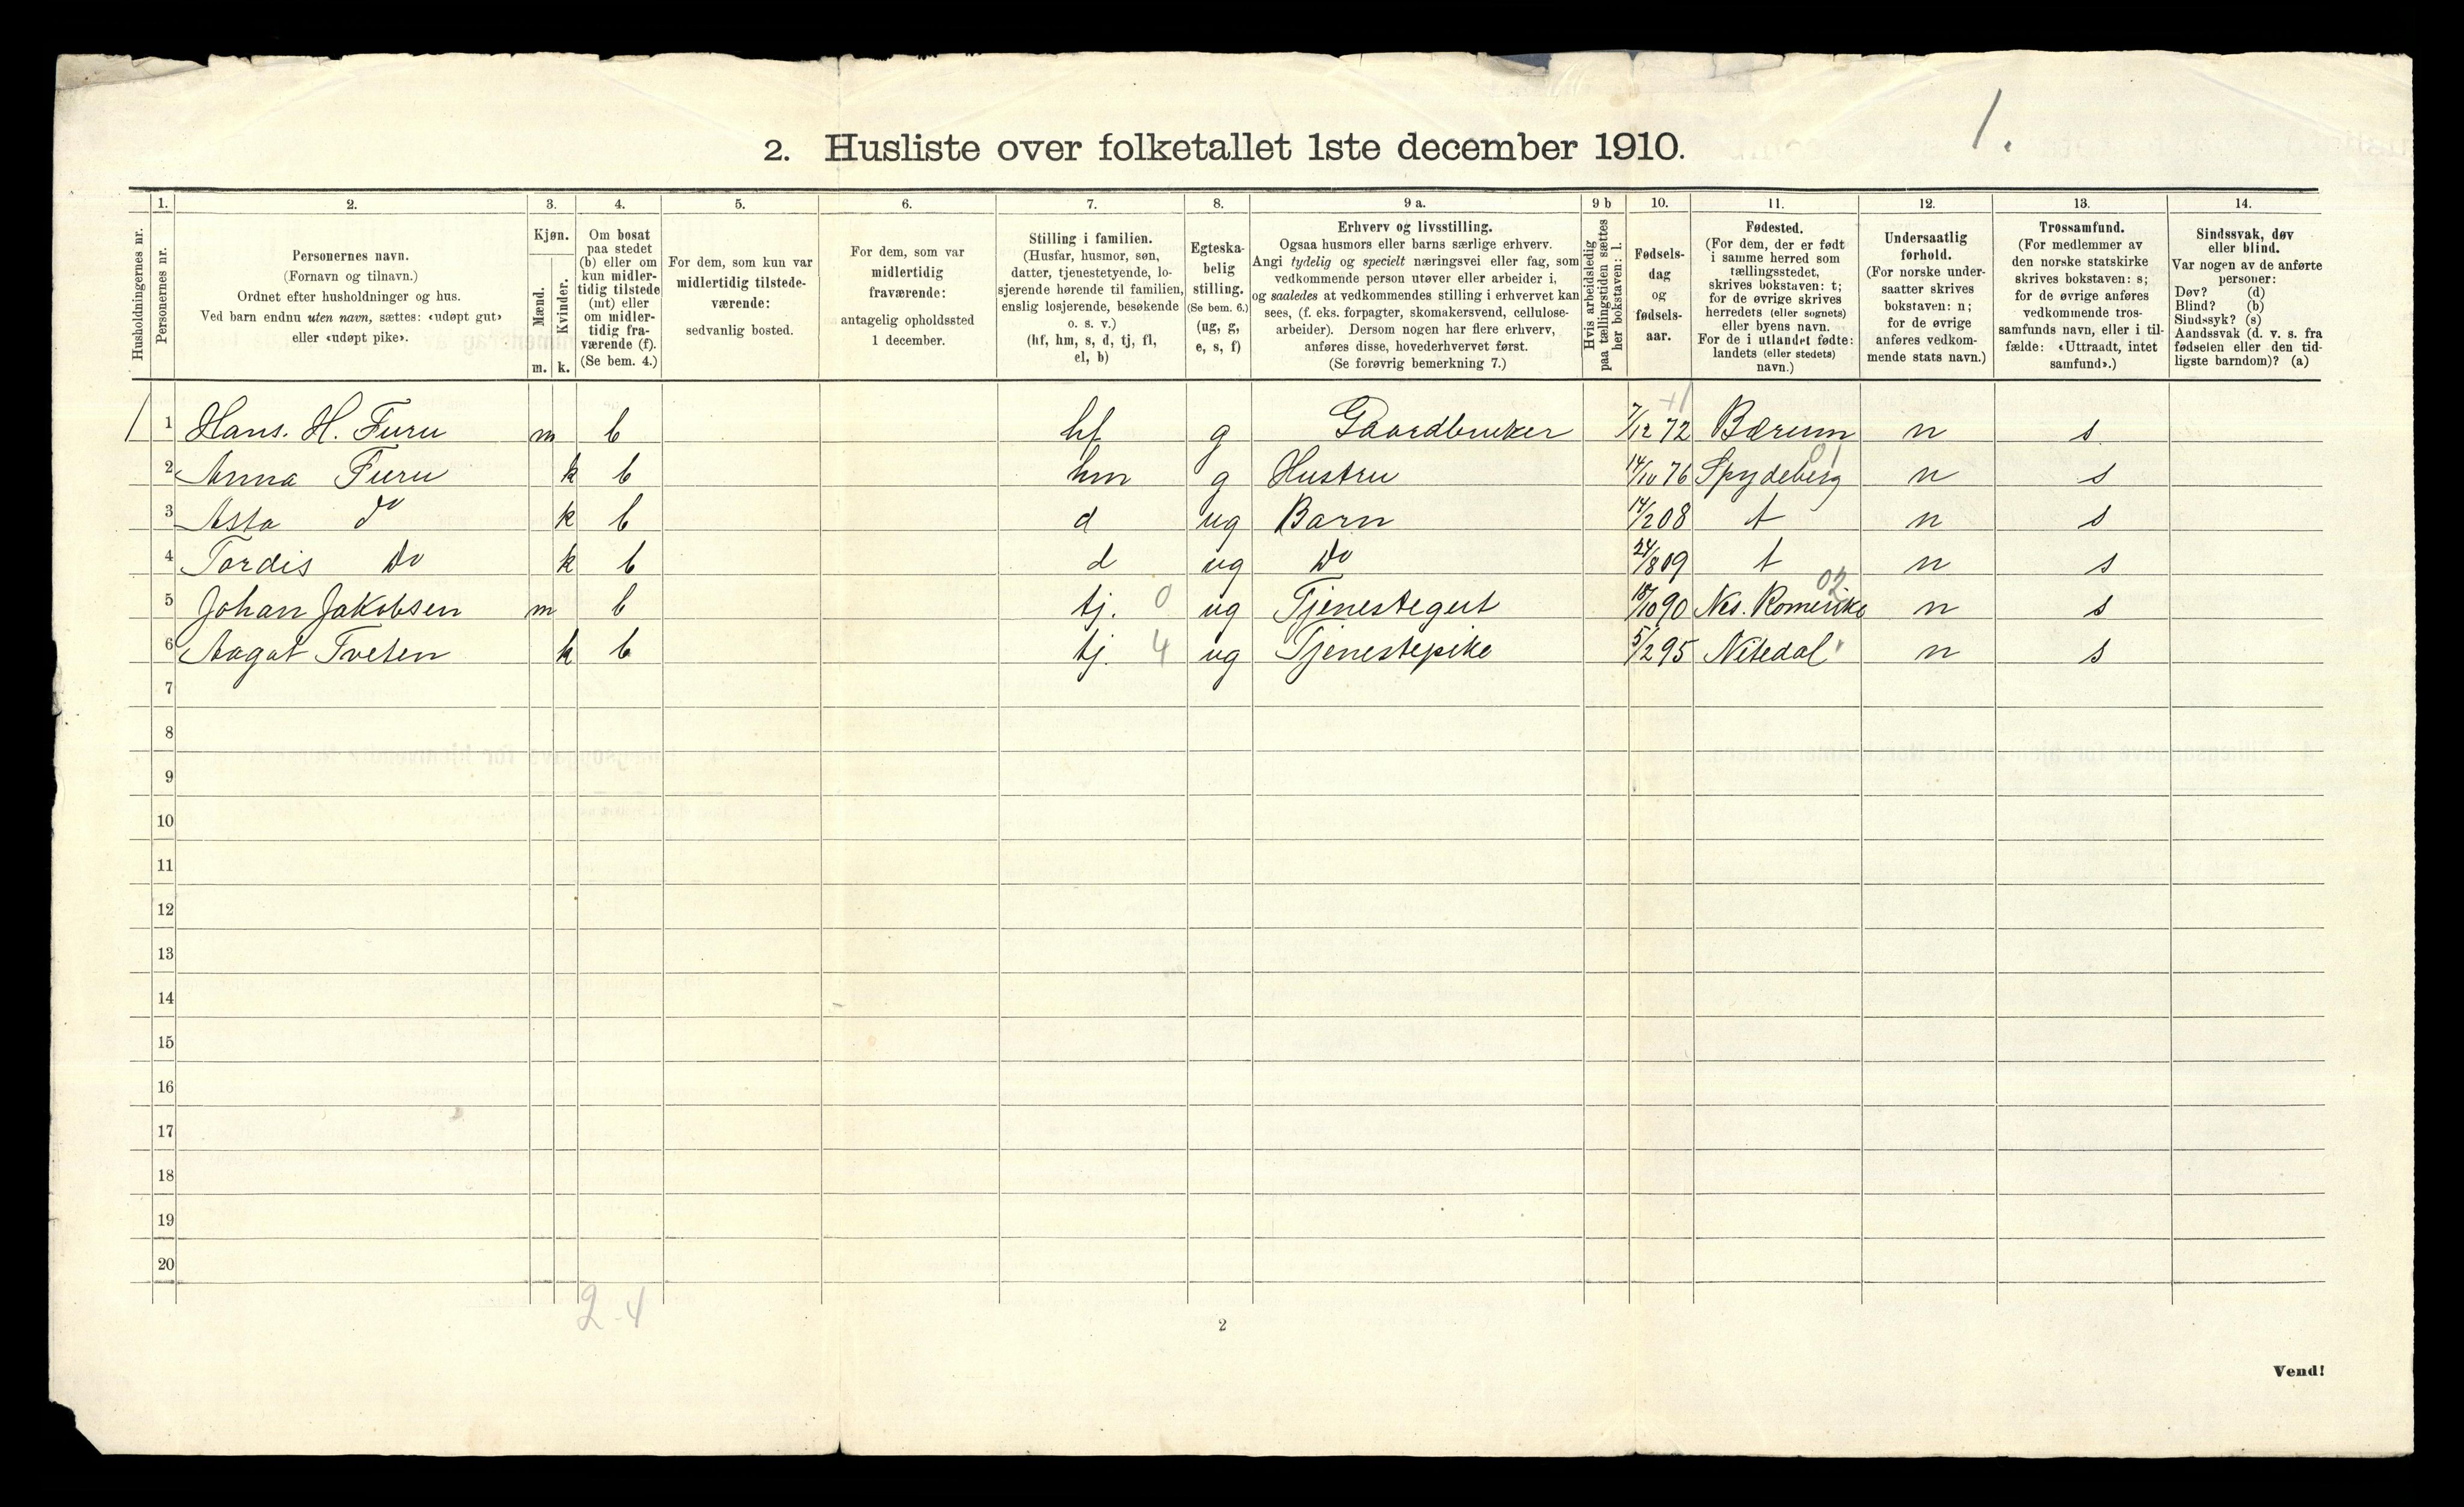 1.
2. Husliste over folketallet 1ste december 1910.
Husholdningernes nr.
1. Personernes nr.
2. Personernes navn. (Fornavn og tilnavn.) Ordnet efter husholdninger og hus. Ved barn endnu uten navn, sættes: «udøpt gut» eller «udøpt pike».
3. Kjøn. Mænd. m. Kvinder. k.
4. Om bosat paa stedet (b) eller om kun midlertidig tilstede (mt) eller om midlertidig fraværende (f). (Se bem. 4.)
5. For dem, som kun var midlertidig tilstedeværende: sedvanlig bosted.
6. For dem, som var midlertidig fraværende: antagelig opholdssted 1 december.
7. Stilling i familien. (Husfar, husmor, søn, datter, tjenestetyende, losjerende hørende til familien, enslig losjerende, besøkende o. s. v.) (hf, hm, s, d, tj, fl, el, b)
8. Egteskabelig stilling. (Se bem. 6.) (ug, g, e, s, f)
9 a. Erhverv og livsstilling. Ogsaa husmors eller barns særlige erhverv. Angi tydelig og specielt næringsvei eller fag, som vedkommende person utøver eller arbeider i, og saaledes at vedkommendes stilling i erhvervet kan sees, (f. eks. forpagter, skomakersvend, cellulosearbeider). Dersom nogen har flere erhverv, anføres disse, hovederhvervet først. (Se forøvrig bemerkning 7.)
9 b Hvis arbeidsledig paa tællingstiden sættes her bokstaven: l.
10. Fødselsdag og fødselsaar.
11. Fødested. (For dem, der er født i samme herred som tællingsstedet, skrives bokstaven: t; for de øvrige skrives herredets (eller sognets) eller byens navn. For de i utlandet fødte: landets (eller stedets) navn.)
12. Undersaatlig forhold. (For norske undersaatter skrives bokstaven: n; for de øvrige anføres vedkommende stats navn.)
13. Trossamfund. (For medlemmer av den norske statskirke skrives bokstaven: s; for de øvrige anføres vedkommende trossamfunds navn, eller i tilfælde: «Uttraadt, intet samfund».)
14. Sindssvak, døv eller blind. Var nogen av de anførte personer: Døv? (d) Blind? (b) Sindssyk? (s) Aandssvak (d. v. s. fra fødselen eller den tidligste barndom)? (a)
1 1 Hans. H. Furu m b hf g Gaardbruker 7/12 72 Bærum n s
2 Anna Furu k b hm g Hustru 14/10 76 Spydeberg 01 n s
3 Asta do k b d ug Barn 14/2 08 t n s
4 Tordis Do k b d ug Do 24/8 09 t n s
5 Johan Jakobsen m b tj. 0 ug Tjenestegut 18/10 90 Nes. Romerike 02 n s
6 Aagot Tveten k b tj. 4 ug Tjenestepike 5/2 95 Nitedal n s
7
8
9
10
11
12
13
14
15
16
17
18
19
20
2-4
2
Vend!